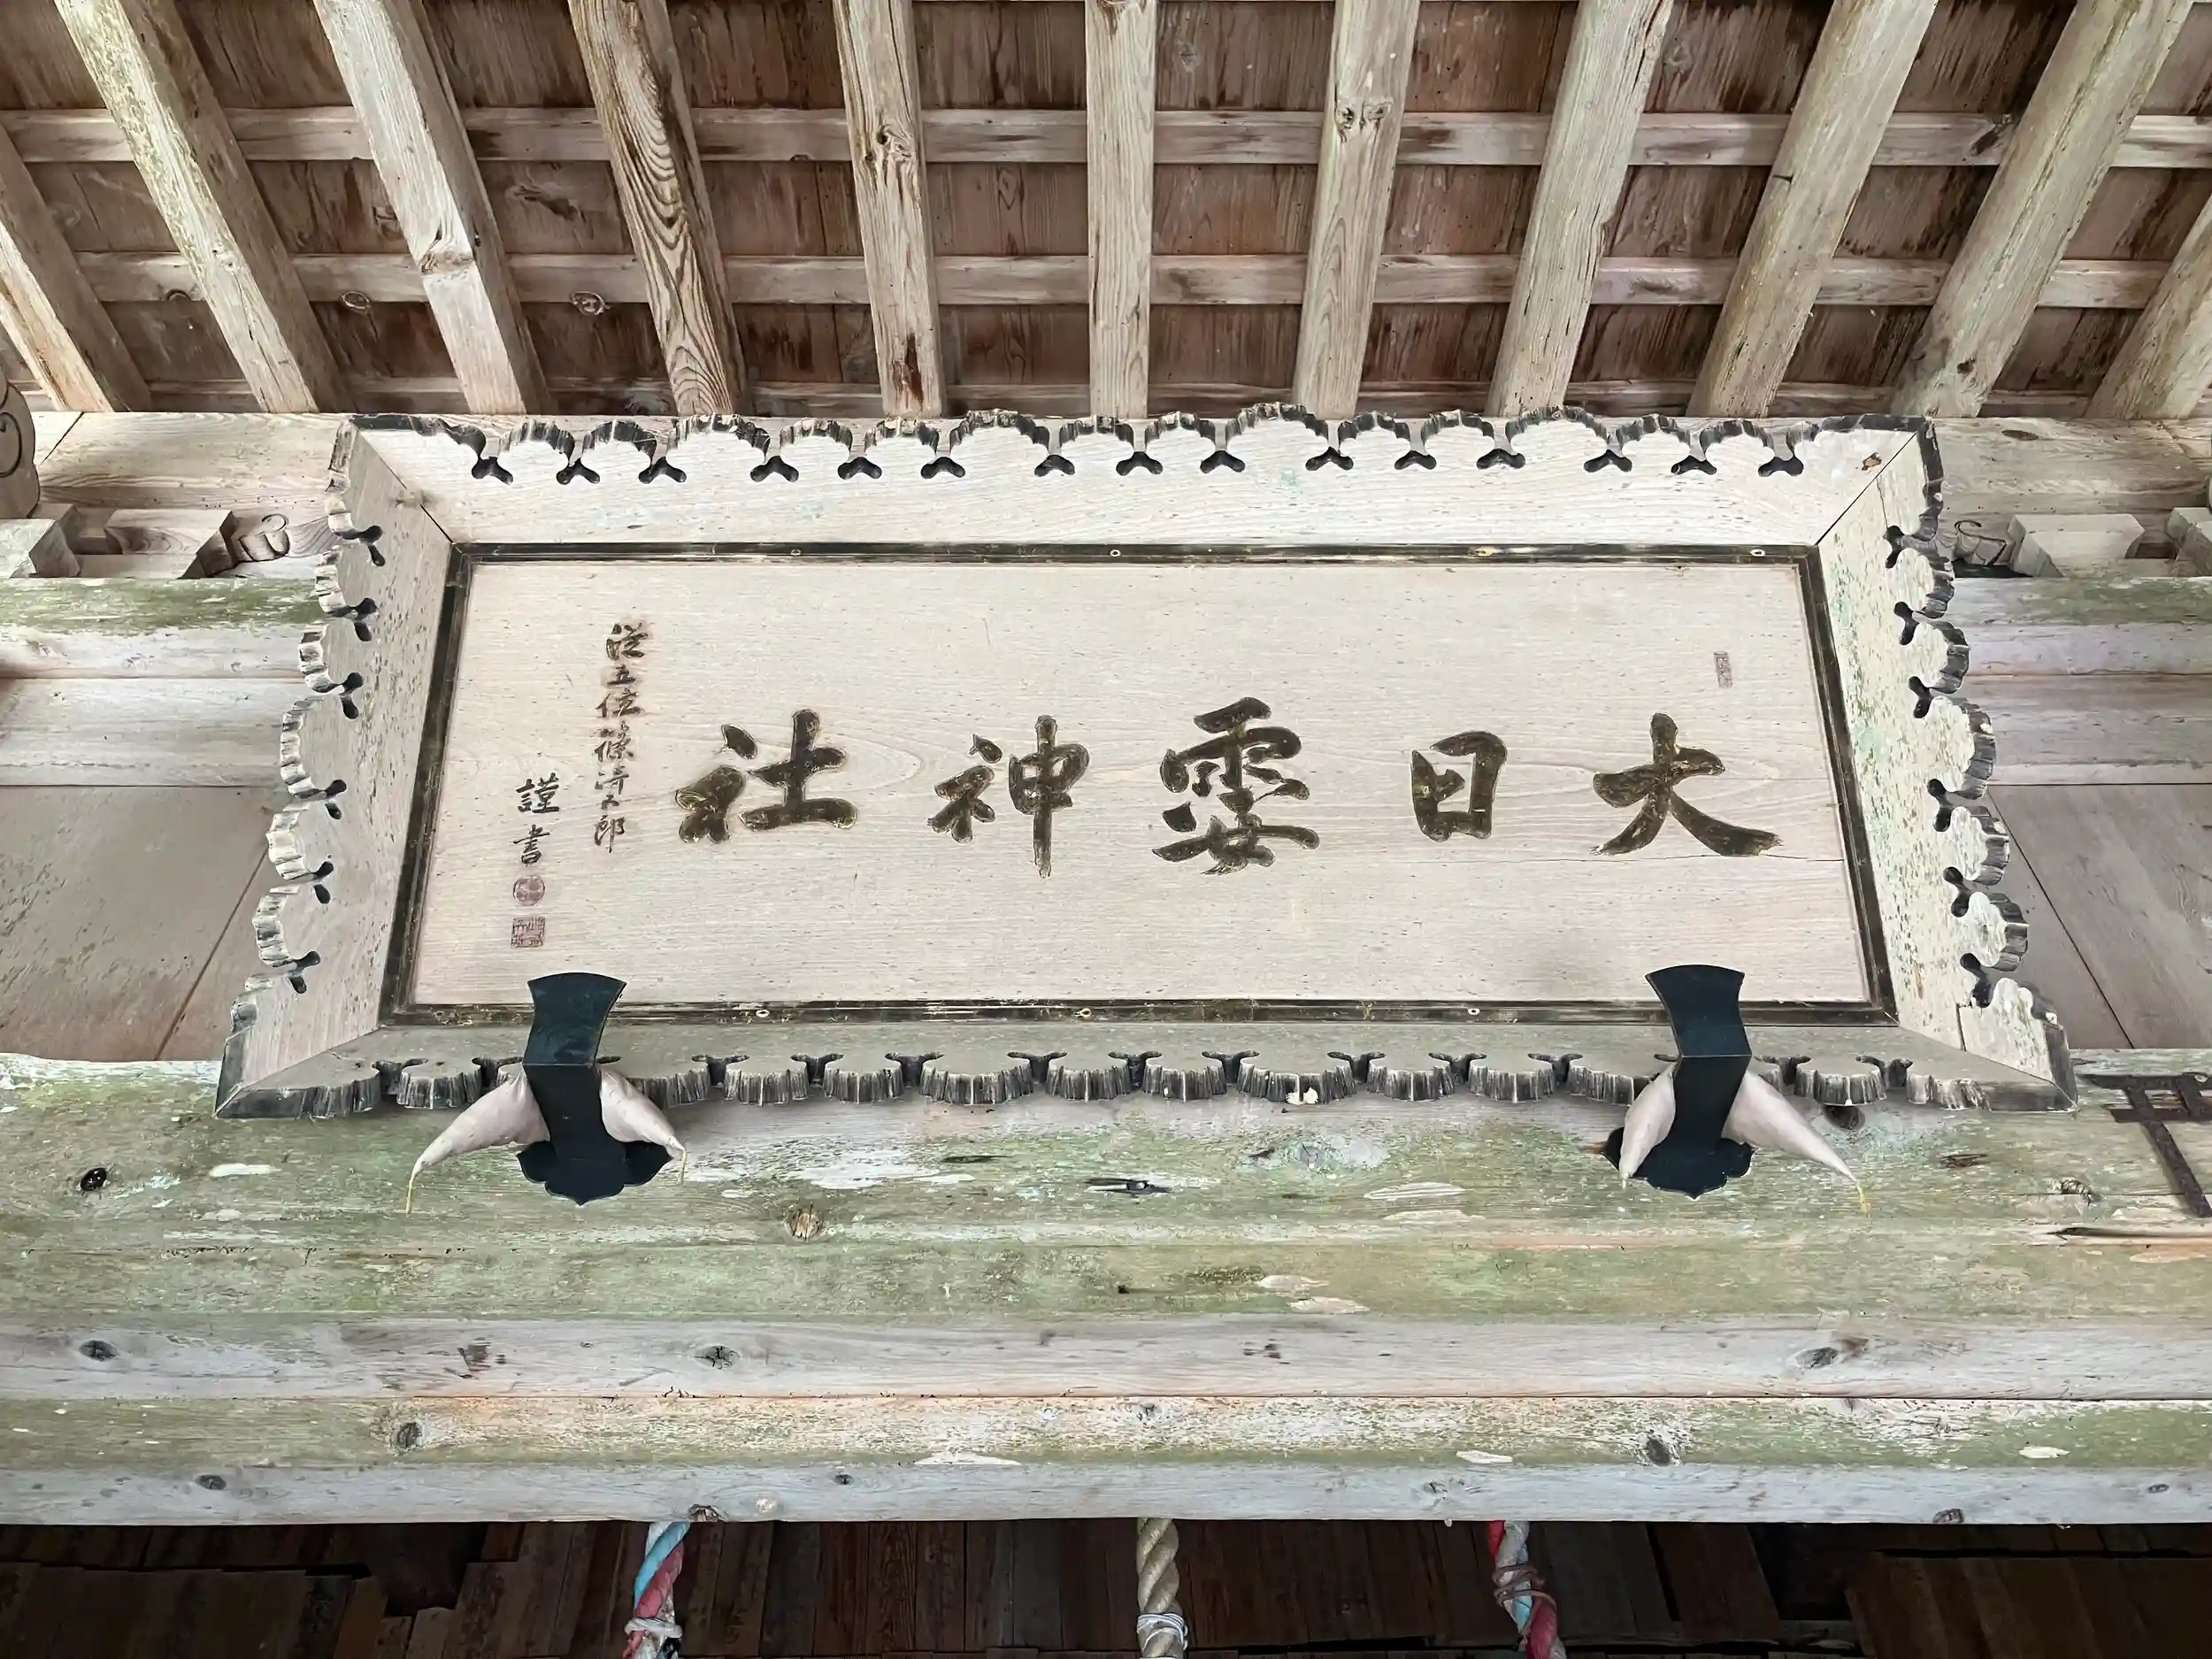 大日孁神社
従五位篠﨑五郎
謹書